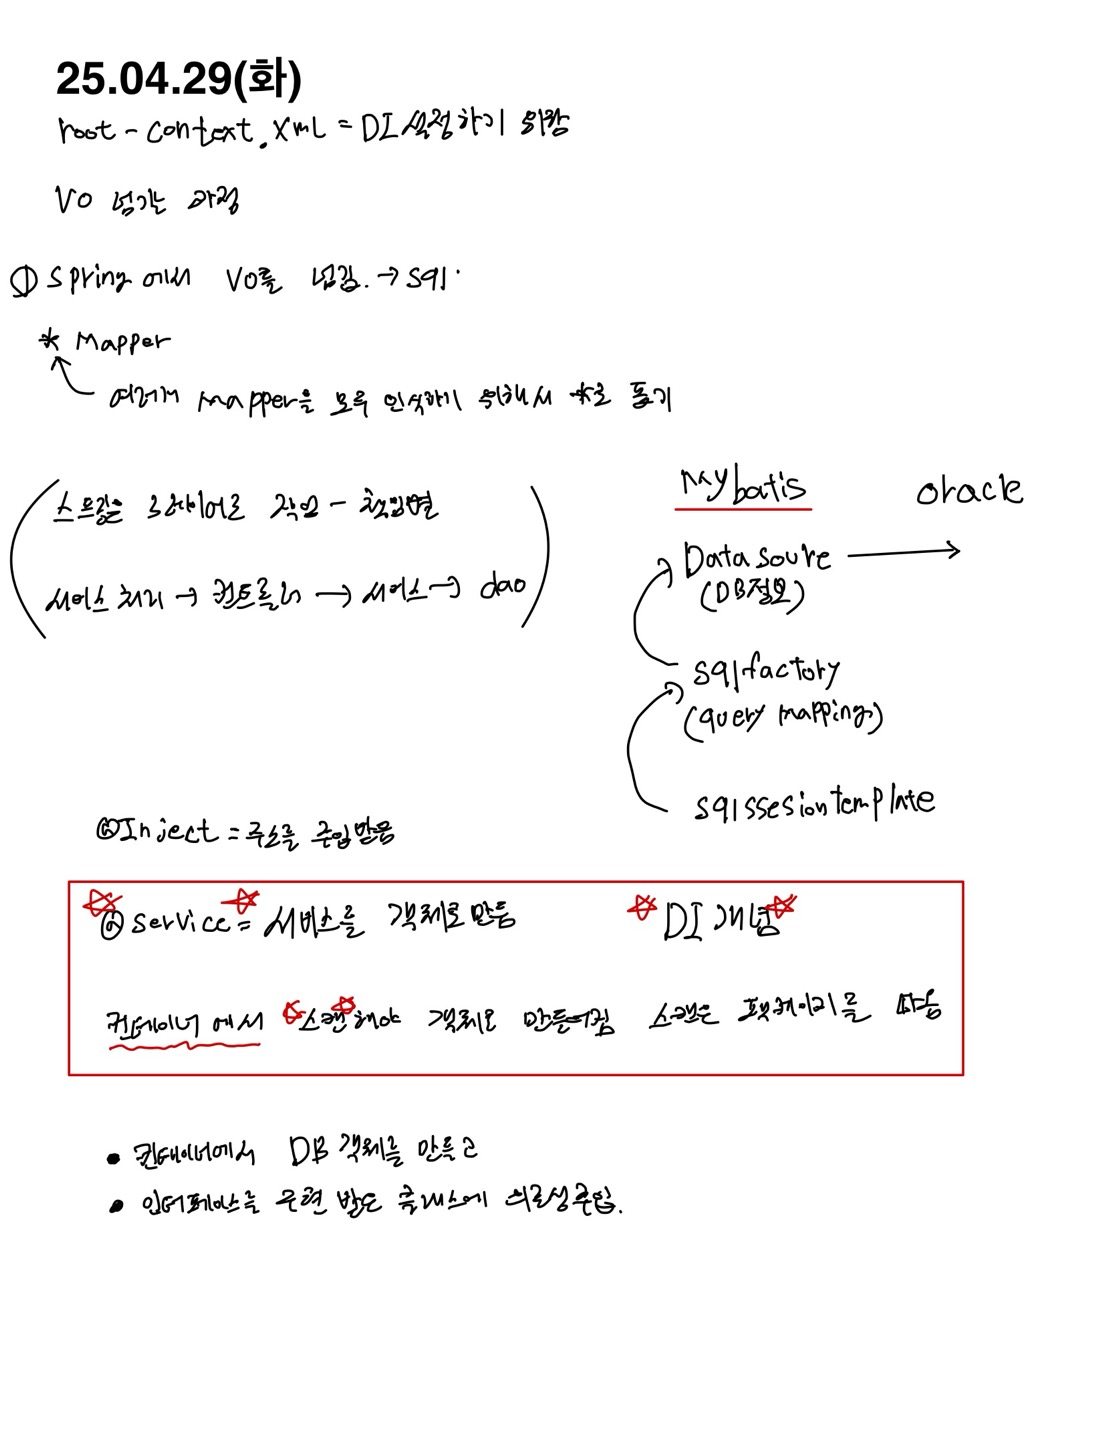 25.04.29(화)
root-context.xml = DI 설정하기 위함
VO 넘기는 과정
① Spring에서 VO를 넘김. → sql.
* Mapper
여러개 mapper을 모두 인식하기 위해서 *로 통기
스프링은 3레이어로 작업 - 책임별
서비스 처리 → 컨트롤러 → 서비스 → dao
mybatis oracle
Datasoure →
(DB정보)
sqlfactory
(query mapping)
sqlssesiontemplate
@Inject = 주소를 주입받음
@service = 서비스를 객체로 만듬 DI 개념
컨테이너에서 스캔해야 객체로 만들어짐 스캔은 를
• 컨테이너에서 DB 객체를 만들고
• 인터페이스를 구현 클래스에 의존성주입.